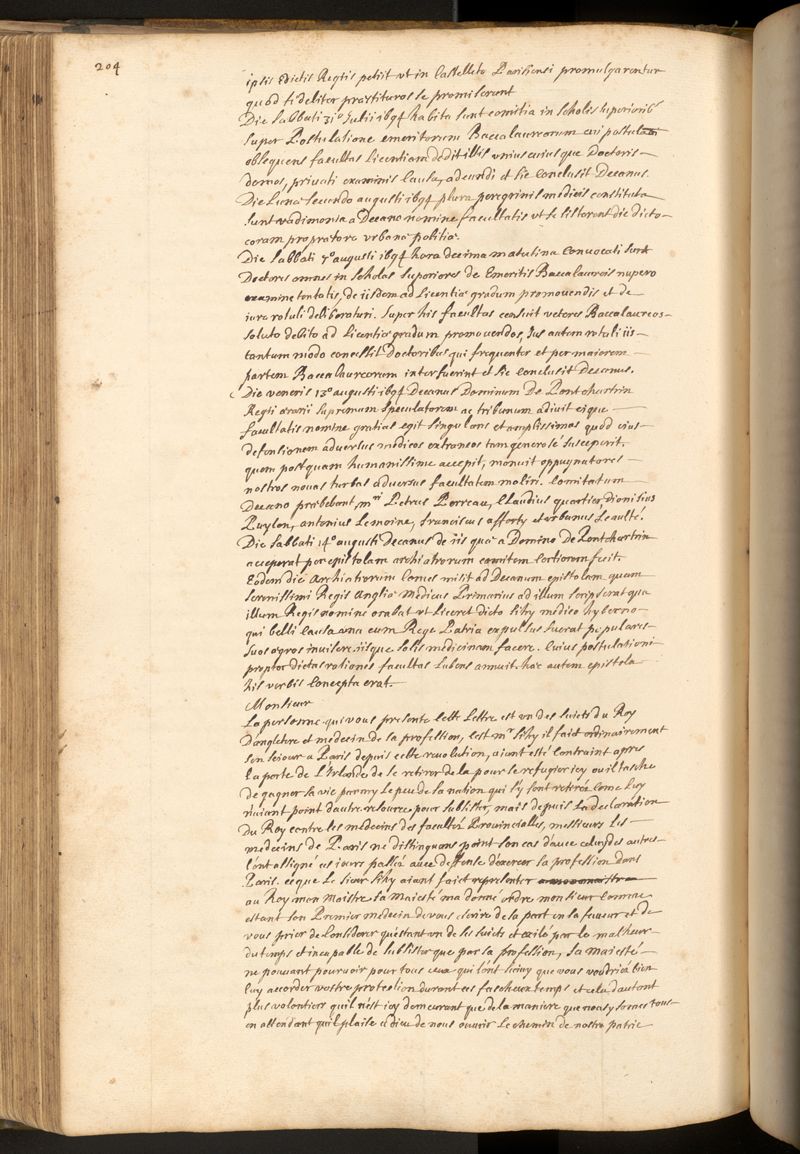 204
ipsis Edictis Regiis petiit ut in Castelleto Parisiensi promulgarentur
quod fideliter praestituros se promiserunt
Die Sabbati 31° Julii 1694 habita sunt comitia in scholis superioribus
super Postulatione emeritorum Baccalaureorum cui postulationi
obsequens facultas Licentiam dedit illis uniuscuiusque Doctoris
domos, privati examinis causa, adeundi et sic conclusit Decanus.
Die Lunae secundo augusti 1694 plura peregrinis medicis constituta
sunt vadimonia a Decano nomine facultatis ut se sisterent die dicto
coram propraetore urbanae politiae.
Die Sabbati 7° augusti 1694 hora decima matutina convocati sunt
Doctores omnes in scholas superiores de Emeritis Baccalaureis nupero
examine tentatis, de iisdem ad Licentiae gradum promovendis et de
iure rotuli deliberaturi. super his facultas censuit vetores Baccalaureos
soluto debito ad Licentiae gradum promovendos, Jus autem rotuli iis
tantum modo concessit Doctoribus qui frequenter et per maiorem
partem Baccalaureorum interfuerint et sic conclusit Decanus.
Die veneris 13° augusti 1694 Decanus Dominum De Pontchartrin
Regii aerarii supremum speculatorem ac tribunum adivit eique
facultatis nomine gratias egit singulares et amplissimas quod eius
defensionem adversus medicos extraneos tam generose susceperit.
quem postquam humanissime accepit, monuit oppugnatores
nostros novas turbas adversus facultatem moliri. Comitatum
Decano praebebant, mri Petrus Perreau, Claudius quartier, Dionisius
Puylon, antonius Lemoine, franciscus afforty et urbanus Leaulté.
Die Sabbati 14° augusti Decanus de iis quae a Domino de Pontchartrin
acceperat per epistolam archiatrorum comitem certiorem fecit.
Eodem die Archiatrorum Comes misit ad Decanum epistolam quam
serenissimi Regis Angliae Medicus Primarius ad illum scripserat qua
illum Regis nomine orabat ut liceret dicto Sihy medico hyberno
qui belli causa una cum Rege Patria expulsus fuerat populares
suos aegros invisere iisque solis medicinam facere. Cuius postulationi
propter dictas rationes facultas lubens annuit. haec autem epistola
his verbis concepta erat.
Monsieur
La personne qui vous presente cette Lettre est un des suiets du Roy
D'angleterre et medecin de sa profession, c'est mr Sihy il faict ordinairement
son seiour a Paris depuis cette revolution, aiant esté contraint apres
la perte de L'Irlande de se retirer de la pour se refugier icy ou il tasche
de gagner sa vie parmy le peu de sa nation qui s'y sont retirés come luy
n'aiant point dautre resource pour subsister, mais depuis La declaration
du Roy contre les medecins des facultés Provincialles, messieurs les
medecins de Paris ne distinguans point son cas d'avec celuy des autres
l'ont assigné ces iours passés avec deffense d'exercer sa profession dans
Paris. ce que Le sieur Sihy aiant faict representer
au Roy mon Maistre sa Maiesté m'a donné ordre monsieur comme
estant son Premier medecin de vous escrire de sa part en sa faveur et de
vous prier de considerer qu'estant un de ses suiets et exilé par le malheur
du temps et incapable de subsister que par sa profession, sa maiesté
ne pouvant pourvoir pour tous ceux qui sont icy que vous voudriés bien
luy accorder vostre protection durant ces fascheux temps et cela dautant
plus volontiers quil n'est icy demeurant que de la maniere que nous y somes tous
en attendant quil plaise a dieu de nous ouvrir le chemin de nostre patrie